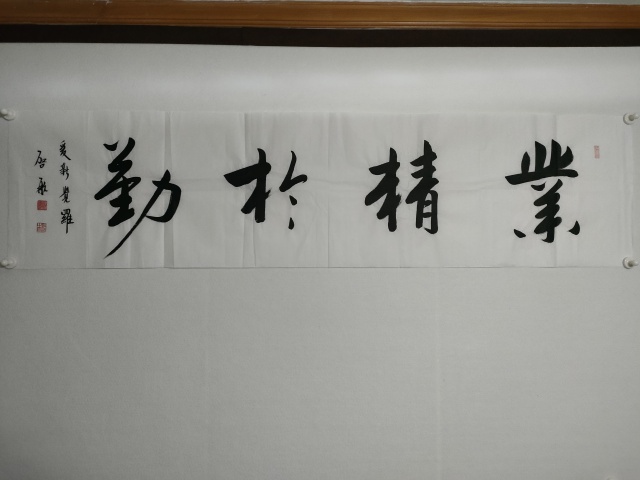 業精於勤
愛新覺羅
啓驤